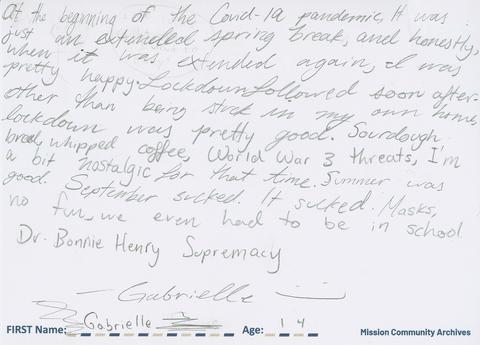 At the beginning of the Covid-19 pandemic, It was
just an extended spring break, and honestly,
when it was extended again, I was
pretty happy. Lockdown followed soon after.
other than being stuck in my own home,
lockdown was pretty good. Sourdough
bread, whipped coffee, World War 3 threats, I'm
a bit nostalgic for that time. Summer was
good. September sucked. It sucked. Masks,
no fun, we even had to be in school
Dr. Bonnie Henry Supremacy
- Gabrielle
FIRST Name: Gabrielle Age: 14 Mission Community Archives